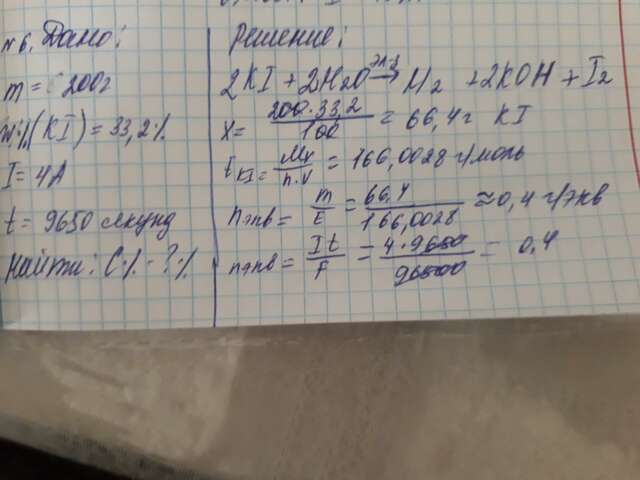 №6. Дано:
m = 200г
ω%(KI) = 33,2%
I = 4А
t = 9650 секунд
Найти: C% - ?%
Решение:
2KI + 2H2O эл-з → H2 + 2KOH + I2
X = 200·33,2 / 100 = 66,4г KI
EKI = Mr / n·V = 166,0028 г/моль
nэкв = m / E = 66,4 / 166,0028 ≈ 0,4 г/экв
nэкв = It / F = 4·9650 / 96500 = 0,4